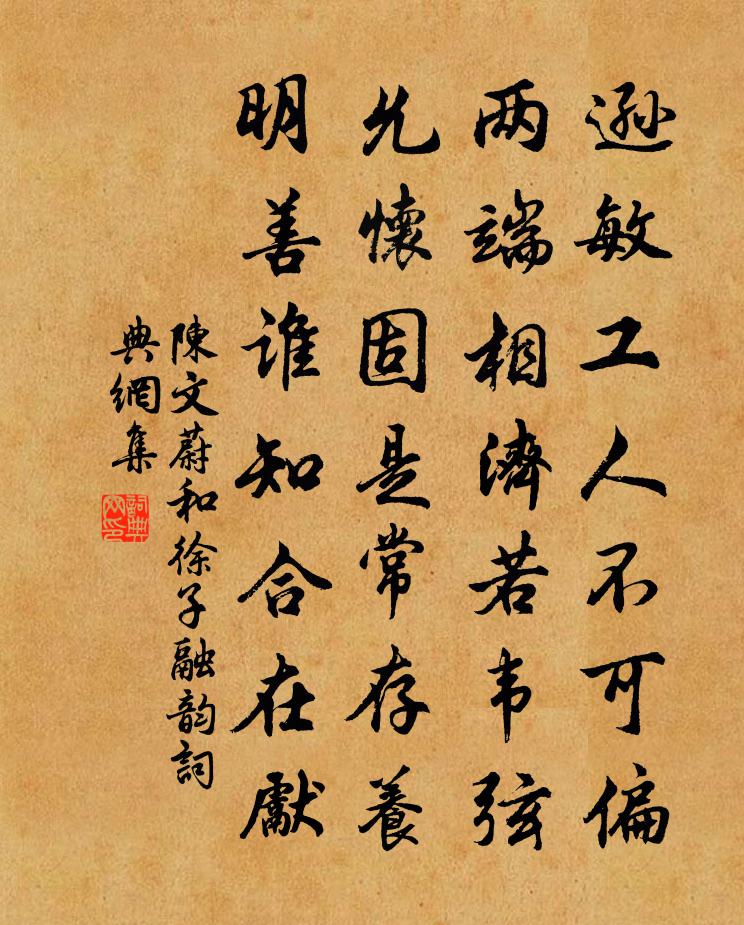 遜敏工人不可偏
两端相濟若韦弦
允懷固是常存養
明善谁知合在獻
陳文蔚和徐子融韵詞
典網集
詞典
网印